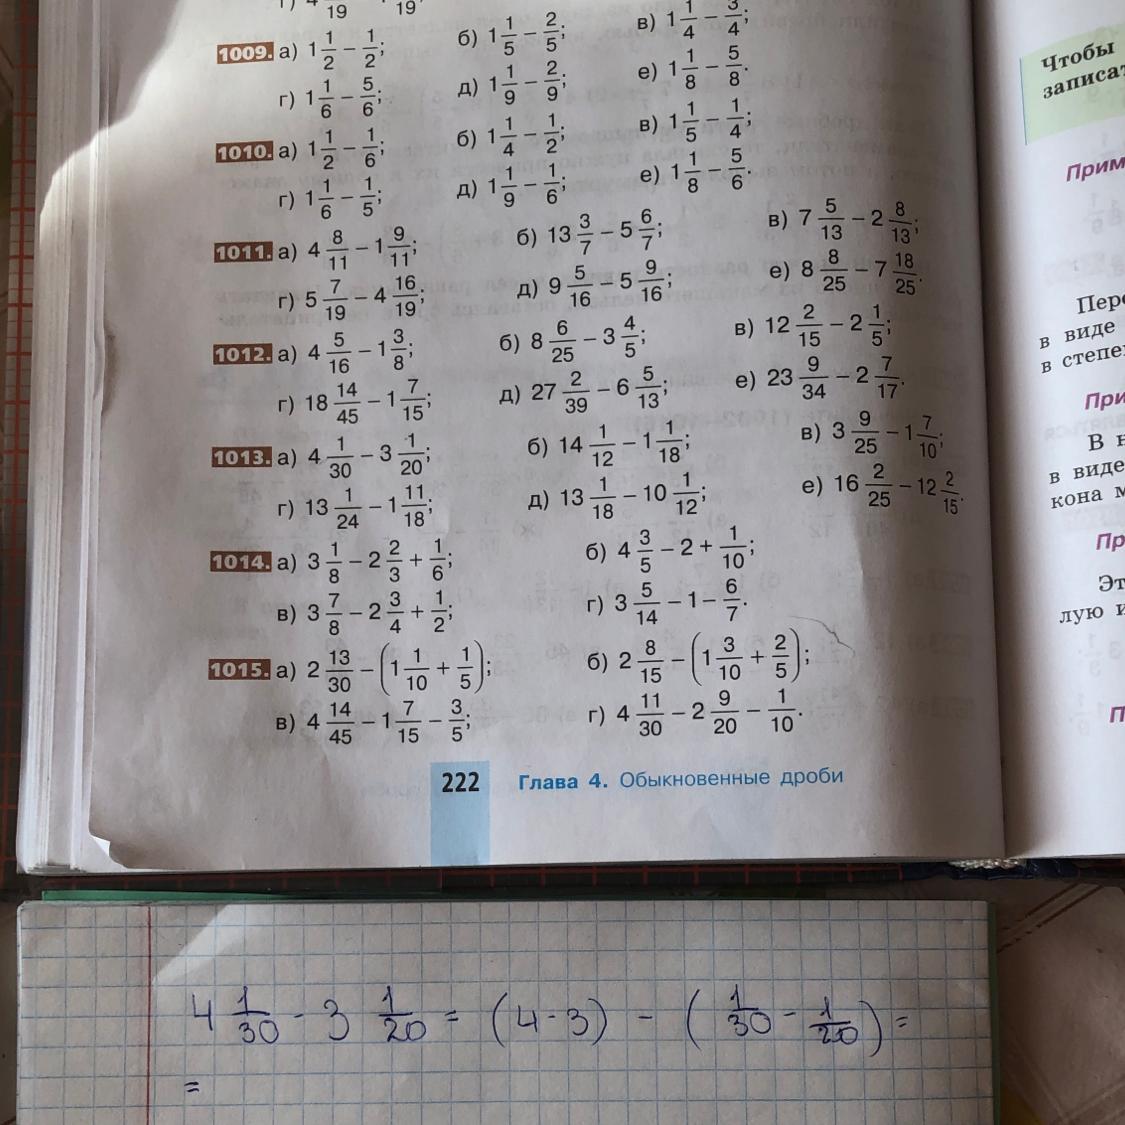 19 19
1009. а) 1 1/2 − 1/2; б) 1 1/5 − 2/5; в) 1 1/4 − 3/4;
г) 1 1/6 − 5/6; д) 1 1/9 − 2/9; е) 1 1/8 − 5/8.
1010. а) 1 1/2 − 1/6; б) 1 1/4 − 1/2; в) 1 1/5 − 1/4;
г) 1 1/6 − 1/5; д) 1 1/9 − 1/6; е) 1 1/8 − 5/6.
1011. а) 4 8/11 − 1 9/11; б) 13 3/7 − 5 6/7; в) 7 5/13 − 2 8/13;
г) 5 7/19 − 4 16/19; д) 9 5/16 − 5 9/16; е) 8 8/25 − 7 18/25.
1012. а) 4 5/16 − 1 3/8; б) 8 6/25 − 3 4/5; в) 12 2/15 − 2 1/5;
г) 18 14/45 − 1 7/15; д) 27 2/39 − 6 5/13; е) 23 9/34 − 2 7/17.
1013. а) 4 1/30 − 3 1/20; б) 14 1/12 − 1 1/18; в) 3 9/25 − 1 7/10;
г) 13 1/24 − 1 11/18; д) 13 1/18 − 10 1/12; е) 16 2/25 − 12 2/15.
1014. а) 3 1/8 − 2 2/3 + 1/6; б) 4 3/5 − 2 + 1/10;
в) 3 7/8 − 2 3/4 + 1/2; г) 3 5/14 − 1 − 6/7.
1015. а) 2 13/30 − (1 1/10 + 1/5); б) 2 8/15 − (1 3/10 + 2/5);
в) 4 14/45 − 1 7/15 − 3/5; г) 4 11/30 − 2 9/20 − 1/10.
222 Глава 4. Обыкновенные дроби
Чтобы
записат
Прим
Пере
в виде
в степе
При
В н
в виде
кона м
Пр
Эт
лую и
П
4 1/30 - 3 1/20 = (4 - 3) - (1/30 - 1/20) =
=